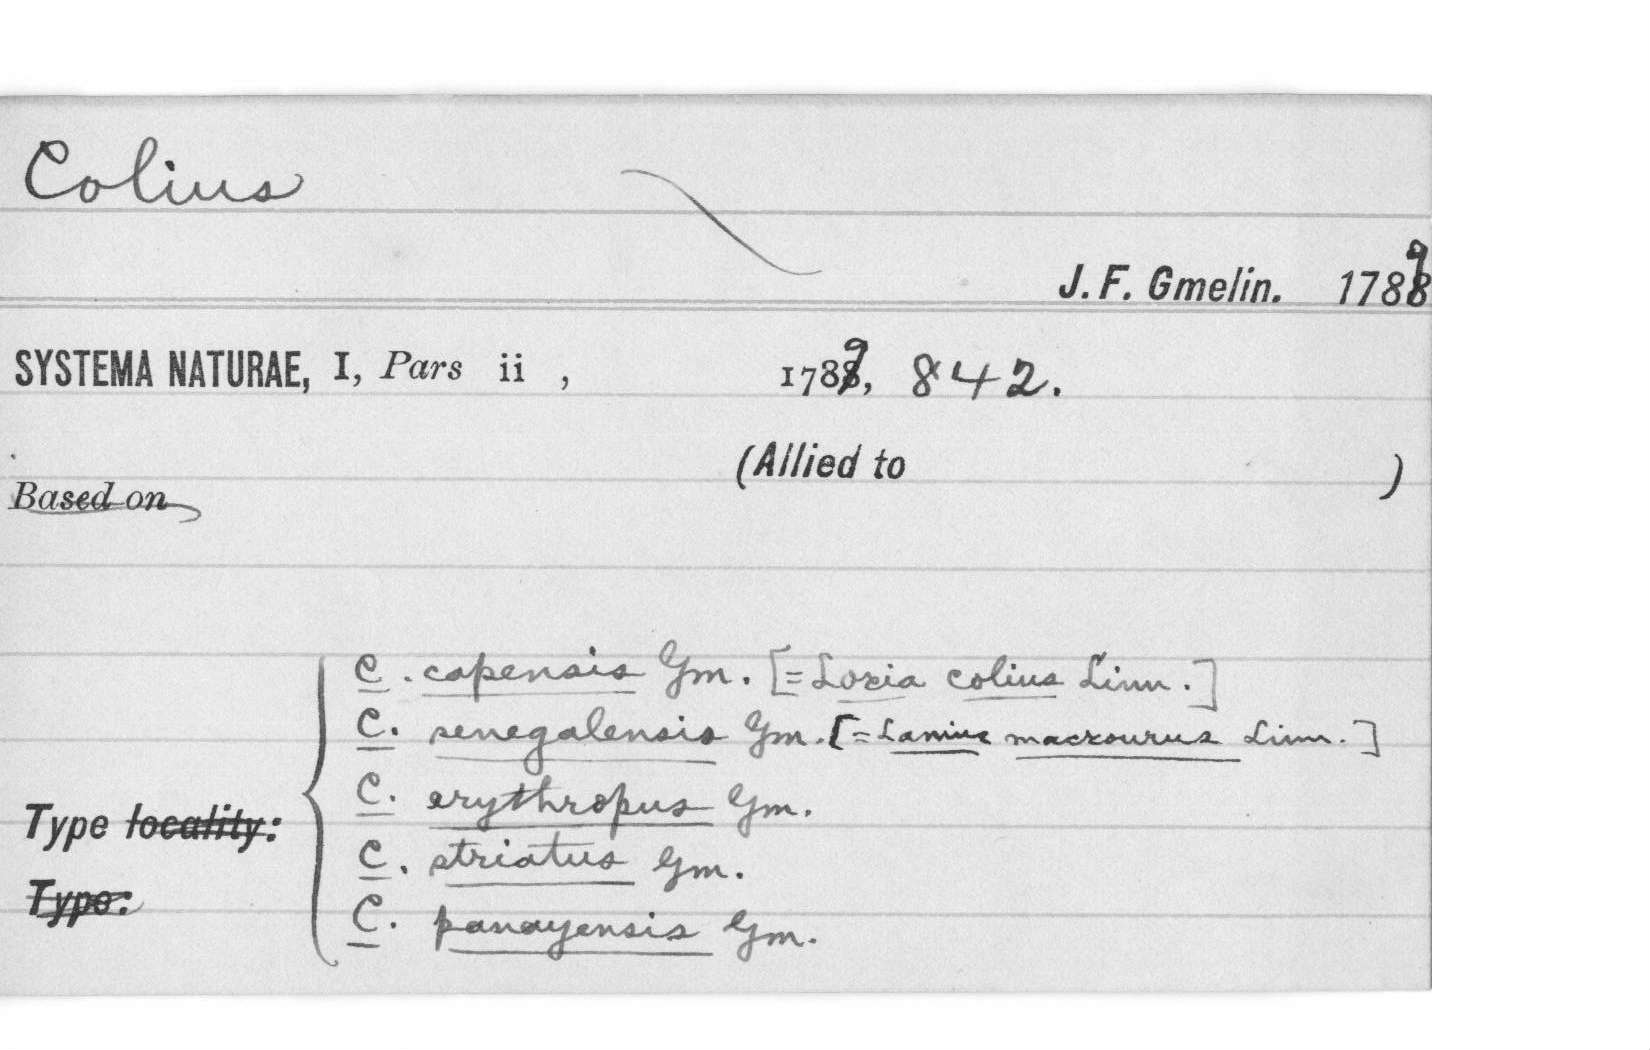 Colius
J. F. Gmelin. 1789
SYSTEMA NATURAE, I, Pars ii , 1789, 842.
(Allied to )
Based on
C. capensis Gm. [=Loxia colius Linn.]
C. senegalensis Gm. [=Lanius macrourus Linn.]
C. erythropus Gm.
Type locality:
C. striatus Gm.
Type:
C. panayensis Gm.